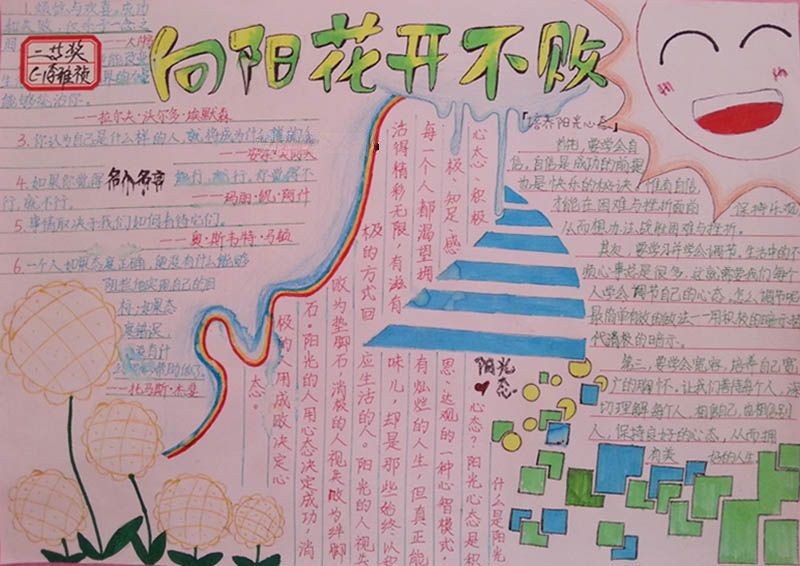 向阳花开不败
二等奖
1.烦恼与欢喜，成功
能够治你。
——拉尔夫·沃尔多·埃默森
3.你认为自己是什么样的人，就将成为什么样的人
4.如果你觉得 能行，就行，你觉得不
行，就不行。
——玛丽·凯·阿什
5.事情取决于我们如何看待它们。
——奥·斯韦特·马顿
6.一个人如果态度正确，便没有什么能够
阻拦他实现自己的目
标，如果态
度错误，
——托马斯·杰斐
阳光
心态
什么是阳光
心态？阳光心态是积
极、知足、感
恩、达观的一种心智模式。
每一个人都渴望拥
有灿烂的人生，但真正能
活得精彩无限，有滋有
味儿，却是那些始终以积
极的方式回
应生活的人。阳光的人视失
败为垫脚石，消极的人视失败为绊脚
石。阳光的人用心态决定成功，消
极的人用成败决定心
态。
「培养阳光心态」
首先，要学会自
信。自信是成功的前提
也是快乐的秘诀。惟有自信，
才能在困难与挫折面前 保持乐观
从而想办法战胜困难与挫折。
其次，要学习并学会调节。生活中的不
顺心事总是很多，这就需要我们每个
人学会调节自己的心态，怎么调节呢
最简单有效的做法——用积极的暗示替
代消极的暗示。
第三，要学会宽容，培养自己宽
广的胸怀。让我们善待每个人，深
切理解每个人，相信自己，也相信别
人，保持良好的心态，从而拥
有美 好的人生